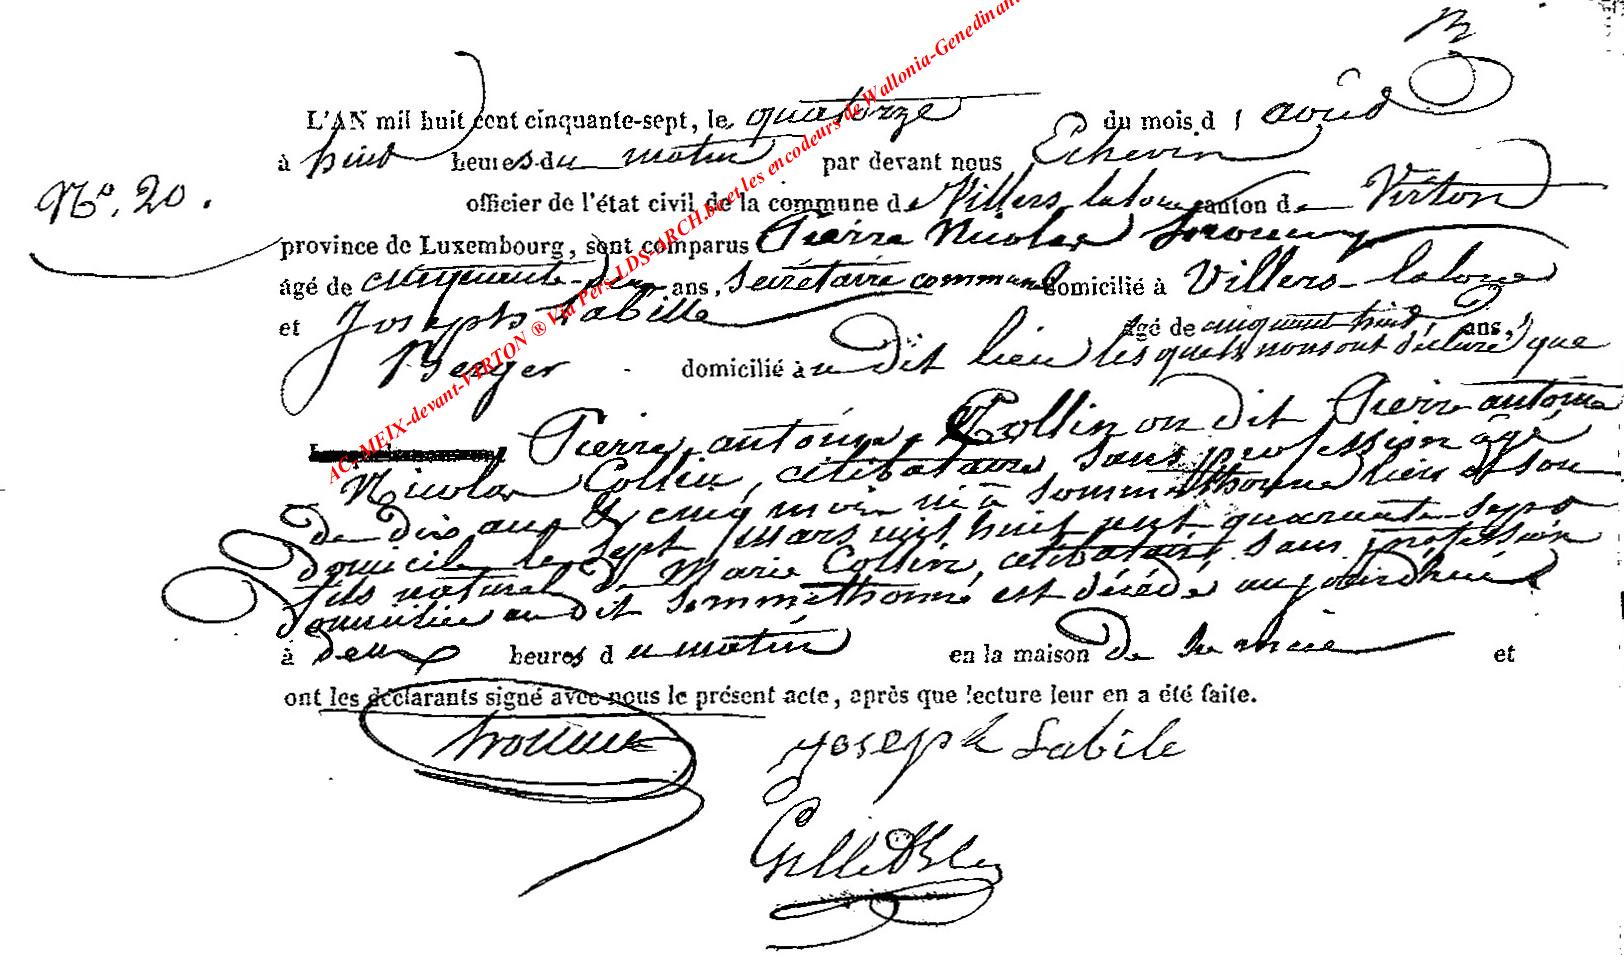 L'AN mil huit cent cinquante-sept, le quatorze du mois d'août
à huit heures du matin par devant nous Echevin
N°. 20. officier de l'état civil de la commune de Villers-laloue canton de Virton
province de Luxembourg, sont comparus Pierre Nicolas
âgé de cinquante- ans, Secrétaire communal domicilié à Villers-laloue
et Joseph Labille âgé de cinquante huit ans,
Berger domicilié au dit lieu les quels nous ont déclaré que
Pierre antoine Collin on dit Pierre antoine
Nicolas Collin, célibataire, sans profession âgé
de dix ans & cinq mois né à Sommethonne lieu de son
domicile le sept mars mil huit cent quarante-sept
fils naturel de Marie Collin, célibataire, sans profession
domiciliée au dit Sommethonne est décédé aujourdhui
à deux heures du matin en la maison de sa mère et
ont les déclarants signé avec nous le présent acte, après que lecture leur en a été faite.
Joseph Labile
AC-MEIX-devant-VIRTON ® Via Pers-LDS-ARCH.be et les encodeurs de Wallonia-Genedinant